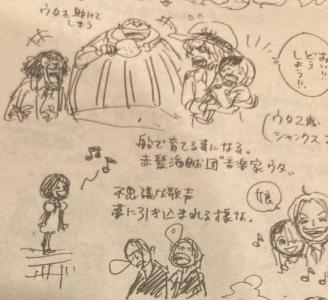 ウタを助けて
しまう
おい!!
どう
しよう!!
ウタ2歳
シャンクス
船で育てる事になる。
赤髪海賊団"音楽家"ウタ
不思議な歌声
夢に引き込まれる様な。
娘